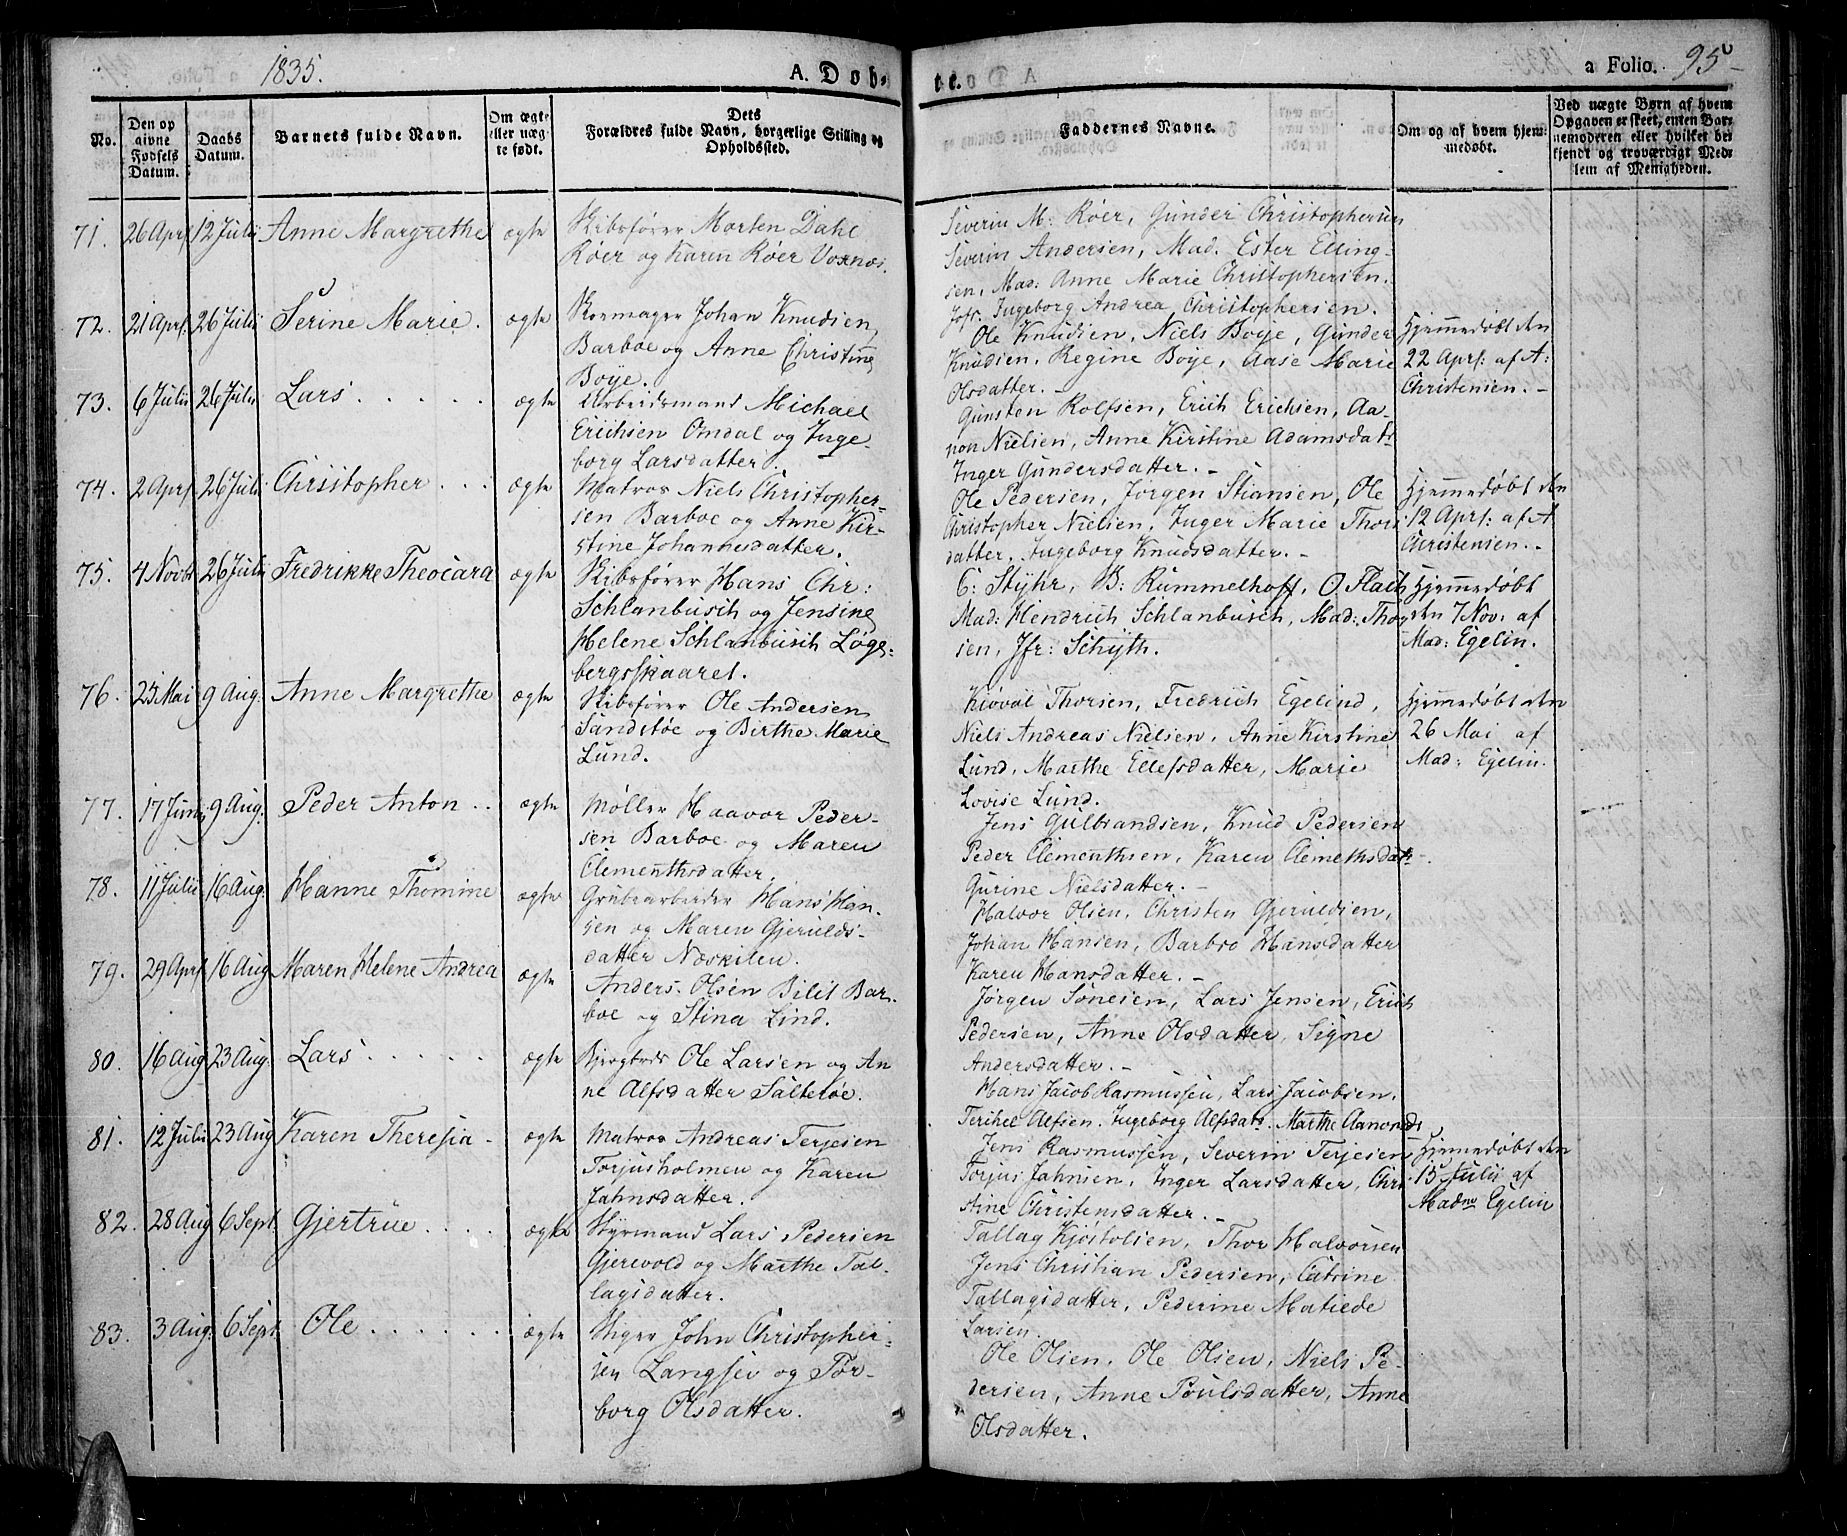 1835.
A. Døb-
te.
a Folio. 95
No.
Den op
givne
Fødsels
Datum.
Daabs
Datum.
Barnets fulde Navn.
Om ægte
eller uæg
te født.
Dets
Forældres fulde Navn, borgerlige Stilling og
Opholdssted.
Faddernes Navne.
Om og af hvem hjem-
medøbt.
Ved uægte Børn af hvem
Opgaven er skeet, enten Bar-
nemoderen eller hvilket be-
kjendt og troværdigt Med-
lem af Menigheden.
71. 26 Apr. 12 Julii Anne Margrethe ægte
Skibsfører Morten Dahl
Røer og Karen Røer Voxnæs.
Severin M: Røer, Gunder Christophersen
Severin Andersen, Mad. Ester Elling-
sen, Mad: Anne Marie Christophersen.
Jofr. Ingeborg Andrea Christophersen.
72. 21 Apr. 26 Julii Serine Marie. ægte
Skomager Johan Knudsen
Barboe og Anne Christine
Boye.
Ole Knudsen, Niels Boye, Gunder
Knudsen, Regine Boye, Aase Marie
Olsdatter. -
Hjemmedøbt den
22 Apr: af A:
Christensen. -
73. 6 Julii 26 Julii Lars . . . . . ægte
Arbeidsmand Michael
Erichsen Omdal og Inge-
borg Larsdatter.
Gunsten Rolfsen, Erich Erichsen, Aa-
non Nielsen, Anne Kirstine Adamsdatr
Inger Gundersdatter. -
74. 2 Apr. 26 Julii Christopher . . . ægte
Matros Niels Christopher-
sen Barboe og Anne Kir-
stine Johannesdatter.
Ole Pedersen, Jørgen Stiansen, Ole
Christopher Nielsen, Inger Marie Thors
datter. Ingeborg Knudsdatter. -
Hjemmedøbt den
12 Apr: af A
Christensen. -
75. 4 Novbr 26 Julii Fredrikke Theocara ægte
Skibsfører Hans Chr:
Schlanbusch og Jensine
Helene Schlanbusch Løge-
bergsskaaret.
C: Styhr, B: Rummelhoff, O Flach
Mad: Hendrich Schlanbusch, Mad: Thor
sen, Jfr: Schyth.
Hjemmedøbt
den 7 Nov: af
Mad: Egelin.
76. 25 Mai 9 Aug. Anne Margrethe ægte
Skibsfører Ole Andersen
Sandstøe og Birthe Marie
Lund.
Kiøval Thorsen, Fredrich Egelind,
Niels Andreas Nielsen, Anne Kirstine
Lund, Marthe Ellefsdatter, Marie
Lovise Lund.
Hjemmedøbt den
26 Mai af
Mad: Egelin.
77. 17 Juni 9 Aug. Peder Anton . . ægte
Møller Haavor Peder-
sen Barboe og Maren
Clementhsdatter.
Jens Gulbrandsen, Knud Pedersen
Peder Clementhsen, Karen Clemethsdatr
Gurine Nielsdatter. -
78. 11 Julii 16 Aug. Hanne Thomine ægte
Grubearbeider Hans Han-
sen og Maren Gjerulds-
datter Næskilen.
Halvor Olsen, Christen Gjeruldsen,
Johan Hansen, Barbro Hansdatter
Karen Hansdatter. -
79. 29 Apr. 16 Aug Maren Helene Andrea ægte
Anders Olsen Bilit Bar-
boe og Stina Lind.
Jørgen Sønesen, Lars Jensen, Erich
Pedersen, Anne Olsdatter, Signe
Andersdatter. -
80. 16 Aug 23 Aug. Lars . . . . . ægte
Ole Larsen og An
ne Alfsdatter Salterøe.
Hans Jacob Rasmussen, Lars Jacobsen,
Terikel Alfsen. Ingeborg Alfsdatr. Marthe Aanonds
81. 12 Julii 23 Aug Karen Theresia - ægte
Matros Andreas Terjesen
Torjusholmen og Karen
Jahnsdatter.
Jens Rasmussen, Severin Terjesen
Torjus Jahnsen, Inger Larsdatter, Chri
stine Christensdatter. -
Hjemmedøbt den
15 Julii af
Madme Egelin
82. 28 Aug 6 Sept. Gjertrue . . . . ægte
Styrmand Lars Pedersen
Gjervold og Marthe Tal-
lagsdatter.
Tallag Kjøstolsen, Thor Halvorsen
Jens Christian Pedersen, Catrine
Tallagsdatter, Pederine Matilde
Larsen.
83. 3 Aug. 6 Sept. Ole . . . . . . ægte
Stiger John Christopher-
sen Langsev og Tor-
borg Olsdatter.
Ole Olsen, Ole Olsen, Niels Pe-
dersen, Anne Poulsdatter, Anne
Olsdatter.